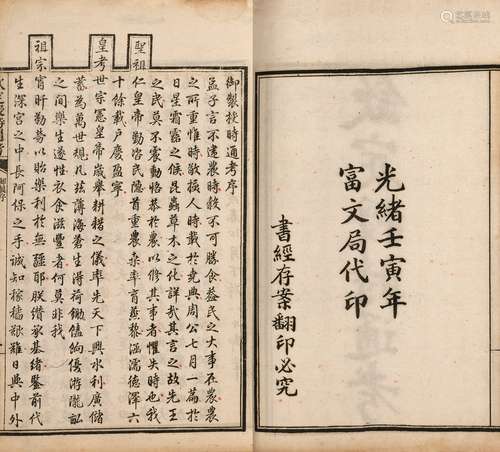 光緒壬寅年
富文局代印
書經存案翻印必究
御製授時通考序
孟子言不違農時穀不可勝食蓋民之大事在農農
之所重惟時敬授人時載於堯典周公七月一篇於
日星霜露之候昆蟲草木之化詳哉其言之故先王
之民莫不震動恪恭於農以修其事者懼失時也我
聖祖仁皇帝勤咨民隱首重農桑率育蒸黎涵濡德澤六
十餘載戶慶盈寧
皇考世宗憲皇帝歲舉耕耤之儀率先天下興水利廣儲
蓄為萬世規凡茲薄海蒼生得荷鋤饁餉優游隴畝
之間樂生遂性衣食滋豐者何莫非我
祖宗宵旰勤勞以貽樂利於無疆耶朕纘承基緒鑒前代
生深宮之中長阿保之手誠知稼穡艱難日與中外